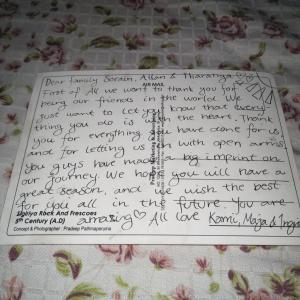 Dear family Sorain, Allan & Tharanga
AIR MAIL
First of All we want to thank you for
being our friends in the world. We
Just want to let you know that every-
thing you do is with the heart. Thank
you for everything you have come for us
and for letting us in with open arms.
You guys have made a big imprint on
our journey. We hope you will have a
great season, and we wish the best
for you all in the future. You are
Sigiriya Rock And Frescoes
5th Century (A.D)
amazing All love Kami, Maja &
Concept & Photographer : Pradeep Pathmaperuma